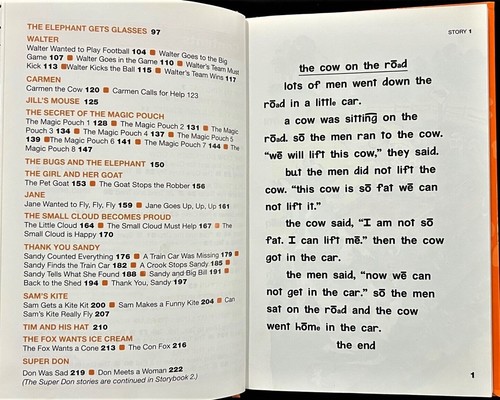 THE ELEPHANT GETS GLASSES 97
WALTER
Walter Wanted to Play Football 104 ■ Walter Goes to the Big
Game 107 ■ Walter Goes in the Game 110 ■ Walter's Team Must
Kick 113 ■Walter Kicks the Ball 115 ■ Walter's Team Wins 117
CARMEN
Carmen the Cow 120 ■ Carmen Calls for Help 123
JILL'S MOUSE 125
THE SECRET OF THE MAGIC POUCH
The Magic Pouch 1 128 ■ The Magic Pouch 2 131 ■ The Magic
Pouch 3 134 ■ The Magic Pouch 4 137 ■ The Magic Pouch 5
139 ■The Magic Pouch 6 141 ■ The Magic Pouch 7 144 ■ The
Magic Pouch 8 147
THE BUGS AND THE ELEPHANT 150
THE GIRL AND HER GOAT
The Pet Goat 153 ■ The Goat Stops the Robber 156
JANE
Jane Wanted to Fly, Fly, Fly 159 ■ Jane Goes Up, Up, Up 161
THE SMALL CLOUD BECOMES PROUD
The Little Cloud 164 ■ The Small Cloud Must Help 167 ■ The
Small Cloud is Happy 170
THANK YOU SANDY
Sandy Counted Everything 176 ■ A Train Car Was Missing 179 ■
Sandy Finds the Train Car 182 ■ A Crook Stops Sandy 185 ■
Sandy Tells What She Found 188 ■ Sandy and Big Bill 191 ■
Back to the Shed 194 ■ Thank You, Sandy 197
SAM'S KITE
Sam Gets a Kite Kit 200 ■ Sam Makes a Funny Kite 204 ■ Can
Sam's Kite Really Fly 207
TIM AND HIS HAT 210
THE FOX WANTS ICE CREAM
The Fox Wants a Cone 213 ■ The Con Fox 216
SUPER DON
Don Was Sad 219 ■ Don Meets a Woman 222
(The Super Don stories are continued in Storybook 2.)
STORY 1
the cow on the rōad
lots of men went down the
rōad in a little car.
a cow was sitting on the
rōad. sō the men ran to the cow.
"wē will lift this cow," they said.
but the men did not lift the
cow. "this cow is sō fat wē can
not lift it."
the cow said, "I am not sō
fat. I can lift mē." then the cow
got in the car.
the men said, "now wē can
not get in the car." sō the men
sat on the rōad and the cow
went hōme in the car.
the end
1